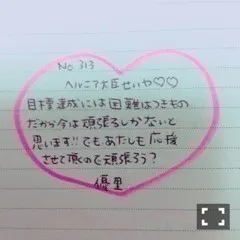 No.313
ヘルニア大臣せいや♡♡
目標達成には困難はつきもの
だから今は頑張るしかないと
思います!!でもあたしも応援
させて頂くので頑張ろう?
優里